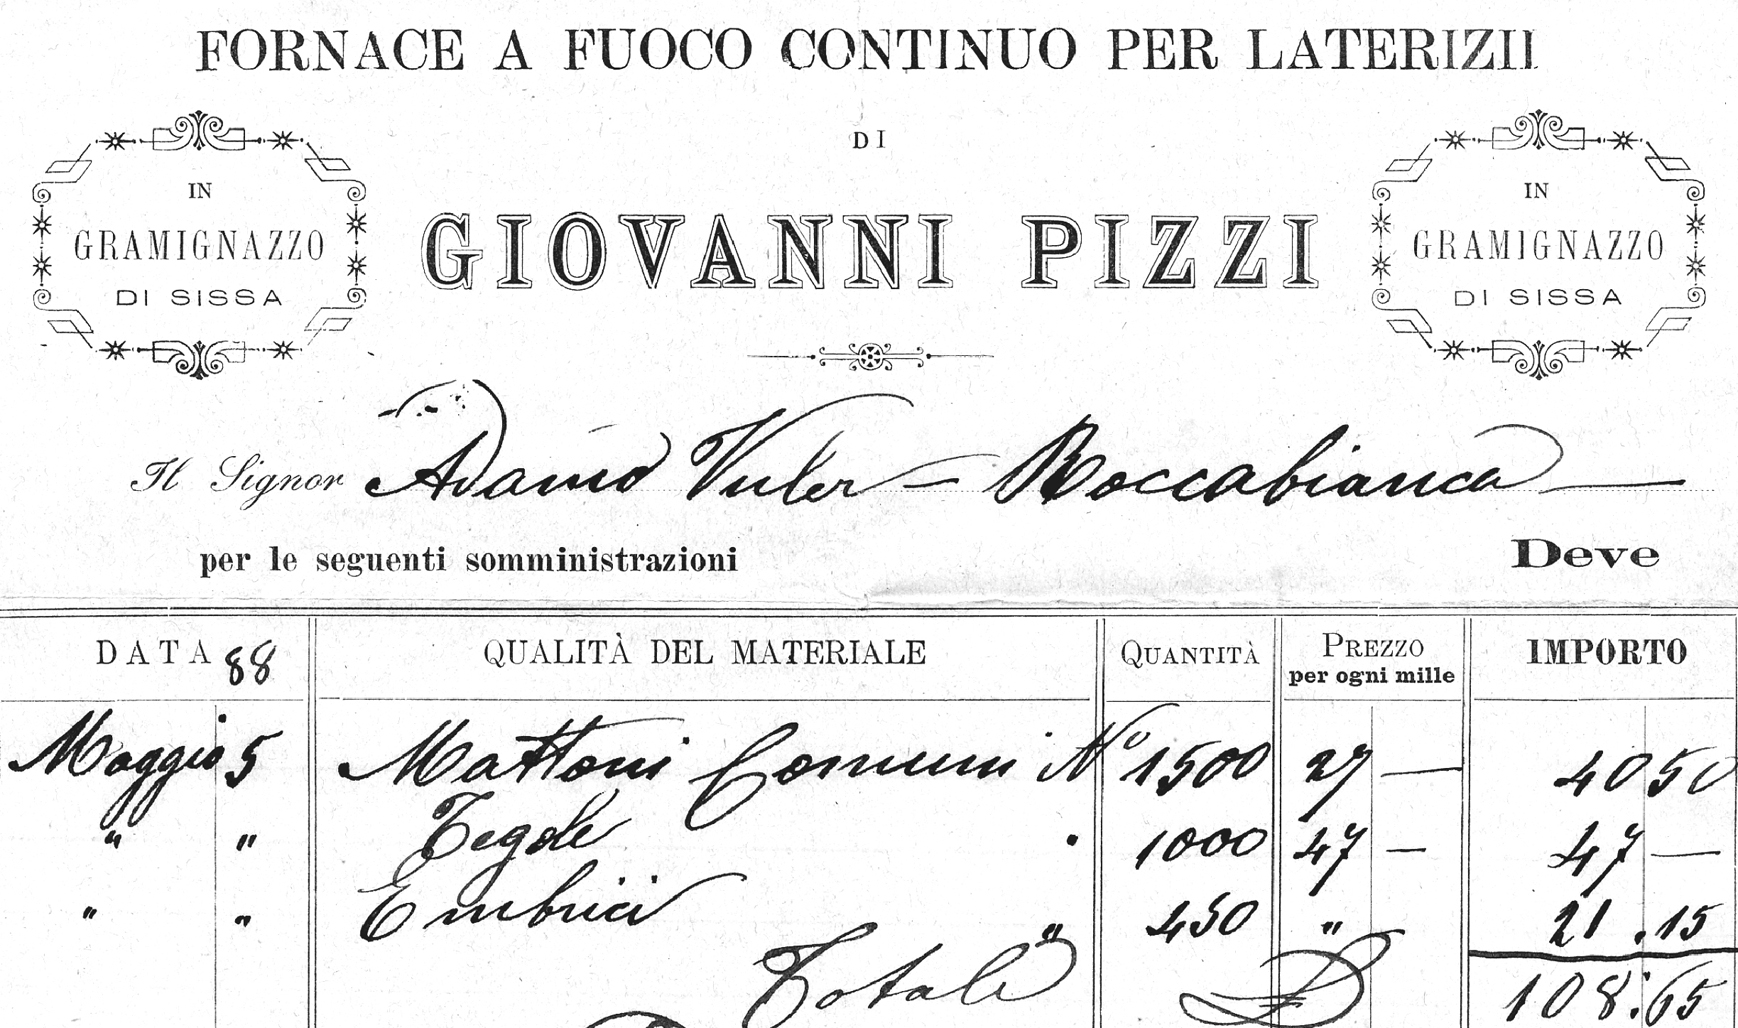 FORNACE A FUOCO CONTINUO PER LATERIZII
DI
IN
GRAMIGNAZZO
DI SISSA
GIOVANNI PIZZI
IN
GRAMIGNAZZO
DI SISSA
Il Signor Adamo - Roccabianca
per le seguenti somministrazioni Deve
DATA 88 QUALITÀ DEL MATERIALE QUANTITÀ PREZZO per ogni mille IMPORTO
Maggio 5 Mattoni Comuni No 1500 27 — 40 50
" " Tegole " 1000 47 — 47 —
" " Embrici " 450 " 21.15
Totale 108:65